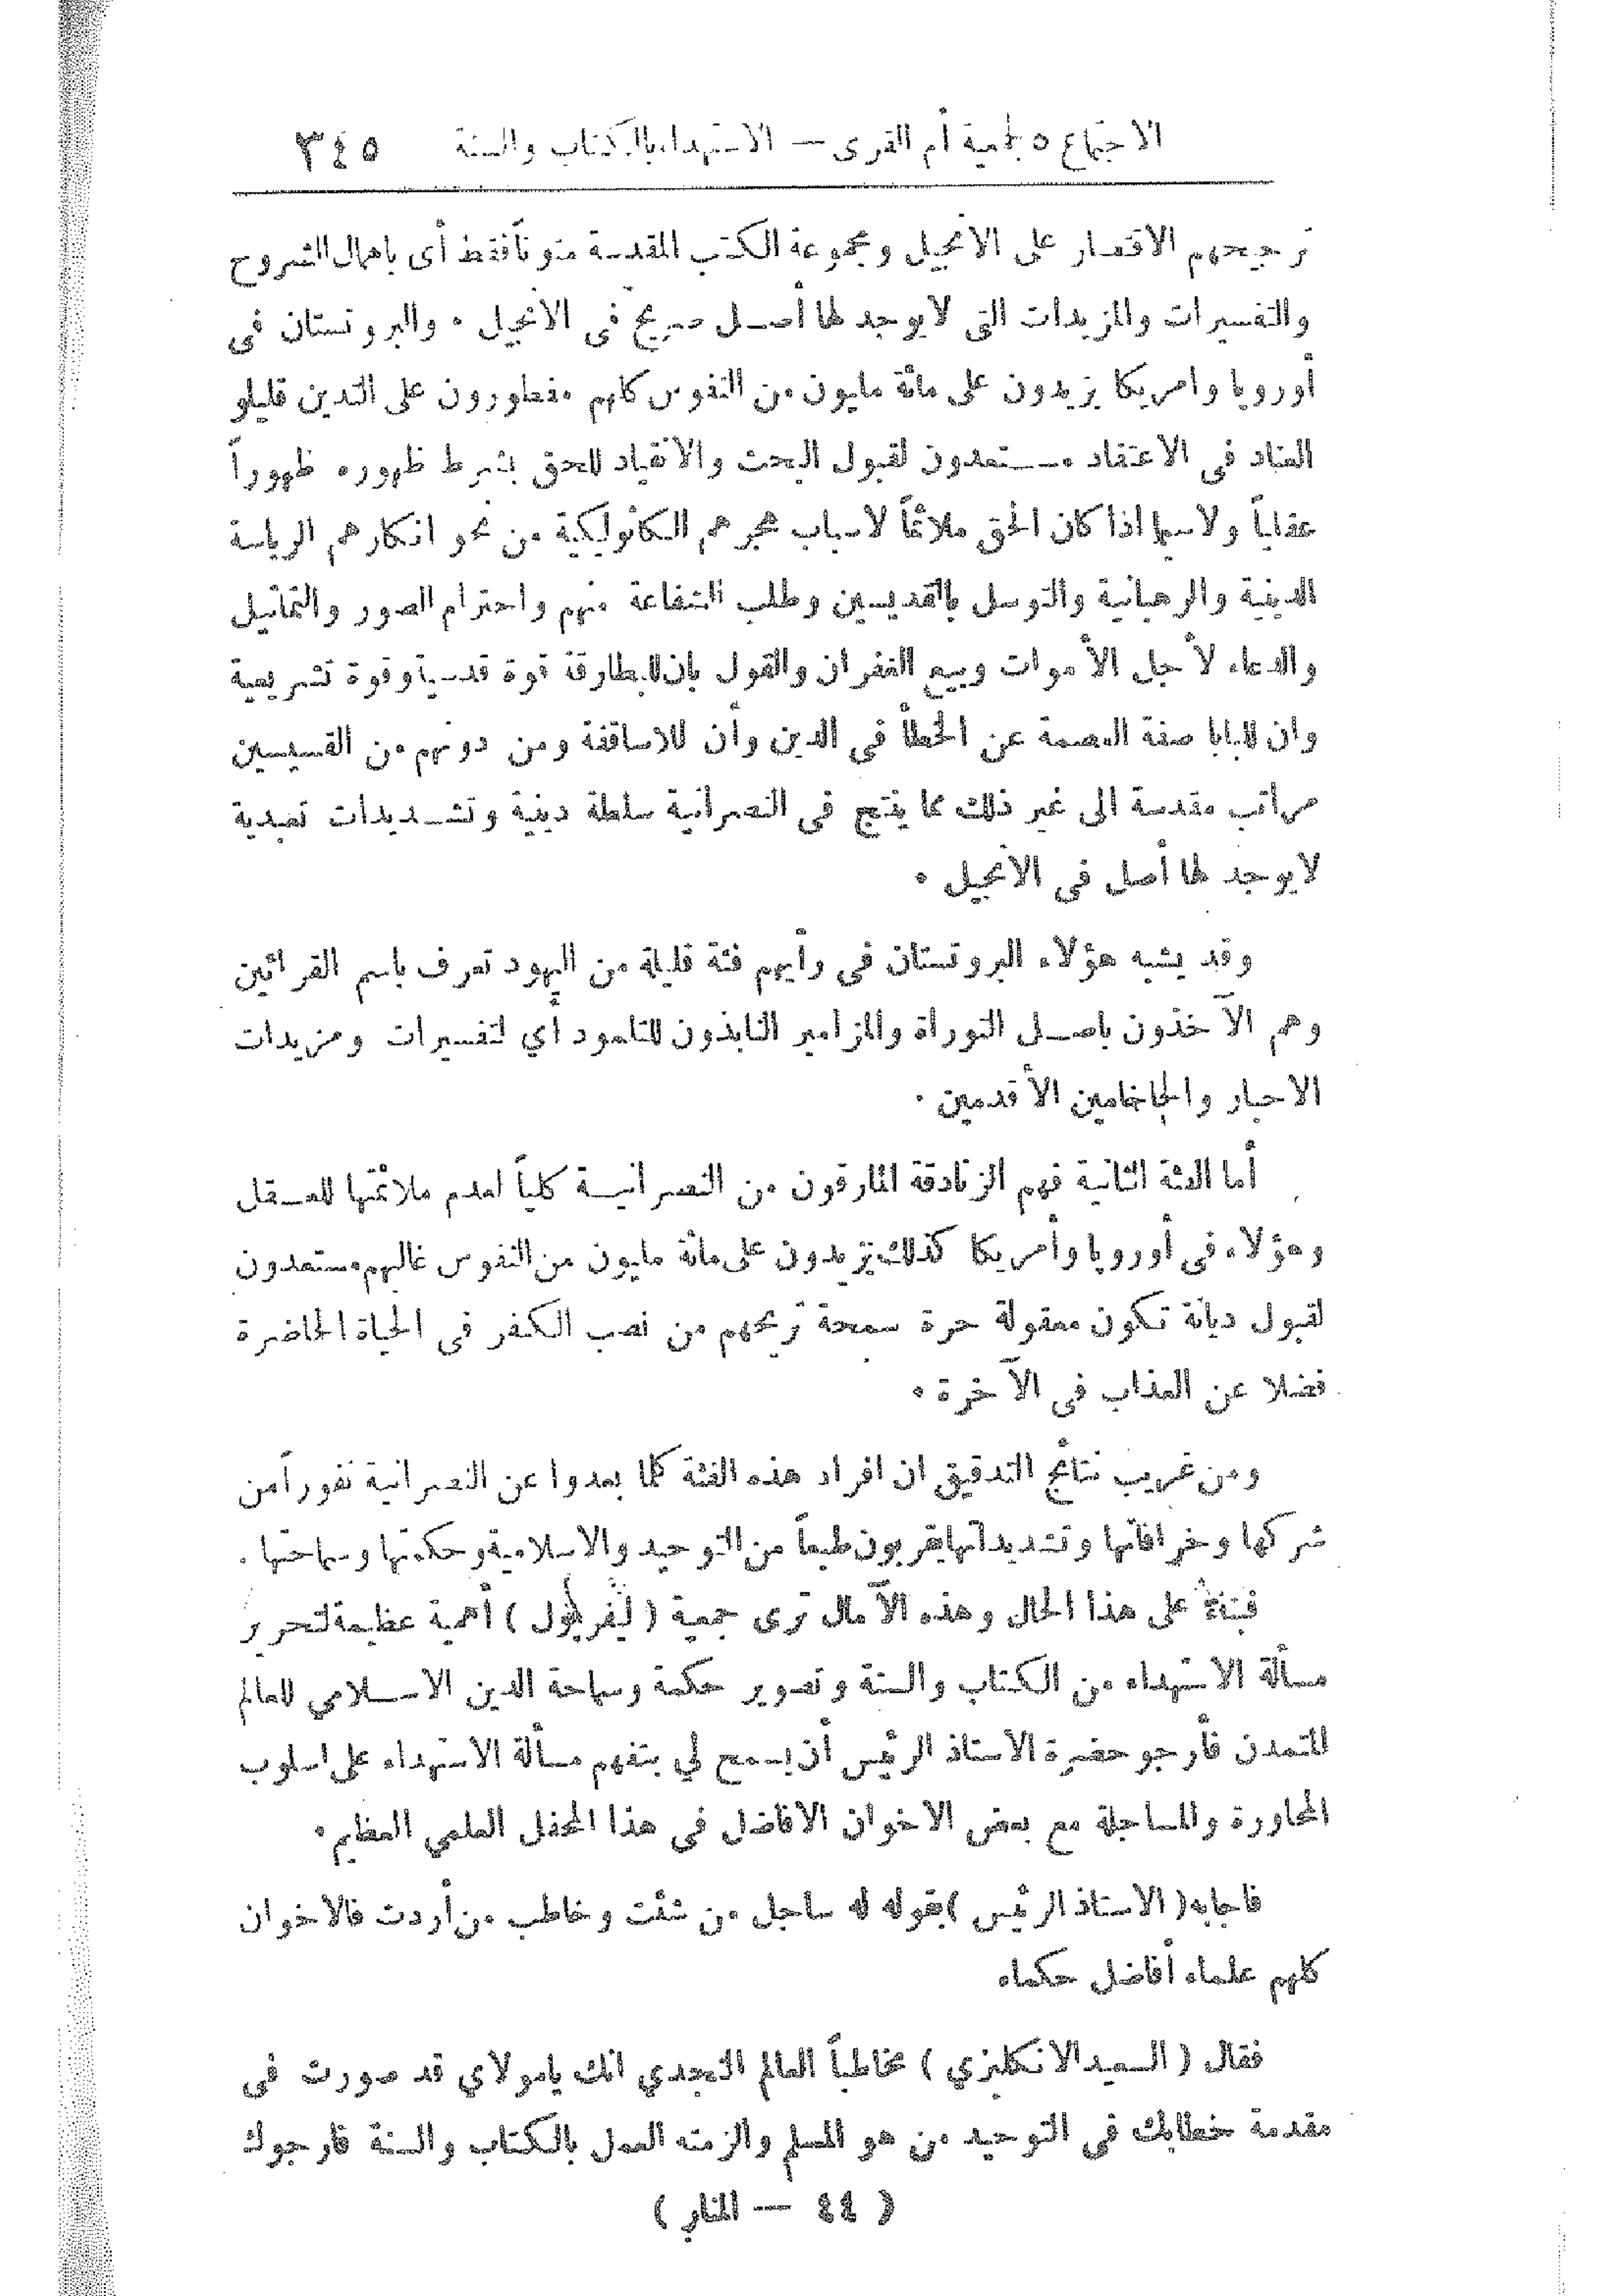 الاجتماع ٥ لجمعية أم القرى — الاستهداء بالكتاب والسنة ٣٤٥
ترجيحهم الاقتصار على الانجيل ومجموعة الكتب المقدسة متوناً فقط أى باهمال الشروح
والتفسيرات والمزيدات التى لا يوجد لها أصل صريح فى الانجيل ٠ والبروتستان فى
أوروپا وامريكا يزيدون على مائة مليون من النفوس كلهم مفطورون على التدين قليلو
العناد فى الاعتقاد مستعدون لقبول البحث والانقياد للحق بشرط ظهوره ظهوراً
عقلياً ولا سيما اذا كان الحق ملائماً لاسباب هجرهم الكاثوليكية من نحو انكارهم الرياسة
الدينية والرهبانية والتوسل بالقديسين وطلب الشفاعة منهم واحترام الصور والتماثيل
والدعاء لأجل الأموات وبيع الغفران والقول بان للبطارقة قوة قدسية وقوة تشريعية
وان للبابا صفة العصمة عن الخطأ فى الدين وأن للاساقفة ومن دونهم من القسيسين
مراتب مقدسة الى غير ذلك مما ينتج فى النصرانية سلطة دينية وتشديدات تعبدية
لا يوجد لها أصل فى الانجيل ٠
وقد يشبه هؤلاء البروتستان فى رأيهم فئة قليلة من اليهود تعرف باسم القرائين
وهم الآخذون باصل التوراة والمزامير النابذون للتلمود أي لتفسيرات ومزيدات
الاحبار والحاخامين الأقدمين ٠
أما الفئة الثانية فهم الزنادقة المارقون من النصرانية كلياً لعدم ملائمتها للعقل
وهؤلاء فى أوروپا وأمريكا كذلك يزيدون على مائة مليون من النفوس غالبهم مستعدون
لقبول ديانة تكون معقولة حرة سمحة تريحهم من نصب الكفر فى الحياة الحاضرة
فضلا عن العذاب فى الآخرة ٠
ومن غريب نتائج التدقيق ان افراد هذه الفئة كلما بعدوا عن النصرانية نفوراً من
شركها وخرافاتها وتشديداتها يقربون طبعاً من التوحيد والاسلامية وحكمتها وسماحتها ٠
فبناءً على هذا الحال وهذه الآمال ترى جمعية ( ليفرپول ) أهمية عظيمة لتحرير
مسألة الاستهداء من الكتاب والسنة وتصوير حكمة وسماحة الدين الاسلامي للعالم
المتمدن فأرجو حضرة الاستاذ الرئيس أن يسمح لي بتفهم مسألة الاستهداء على اسلوب
المحاورة والمساجلة مع بعض الاخوان الافاضل فى هذا المحفل العلمي العظيم ٠
فاجابه ( الاستاذ الرئيس ) بقوله له ساجل من شئت وخاطب من أردت فالاخوان
كلهم علماء أفاضل حكماء
فقال ( السعيد الانكليزي ) مخاطباً العالم النجدي انك يا مولاي قد صورت فى
مقدمة خطابك فى التوحيد من هو المسلم والزمته العمل بالكتاب والسنة فارجوك
( ٤٤ — المنار )